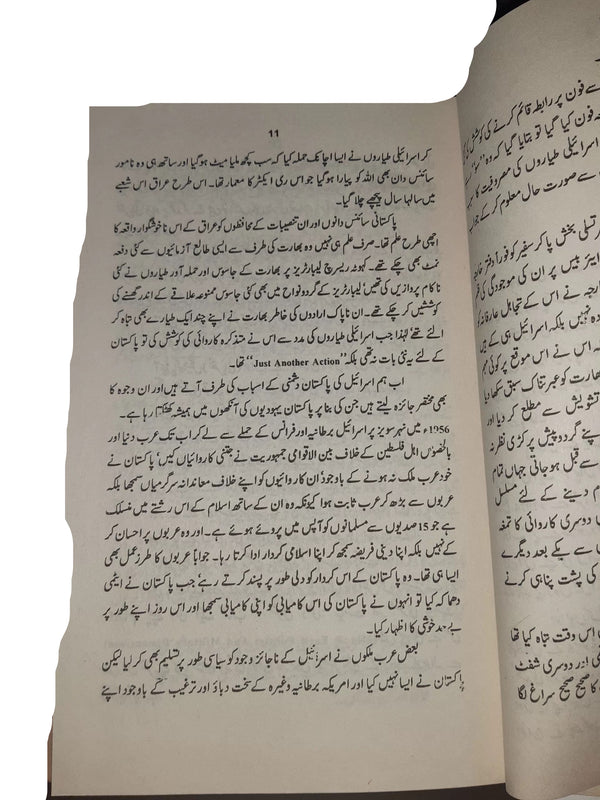 11
کر اسرائیلی طیاروں نے ایسا اچانک حملہ کیا کہ سب کچھ ملیا میٹ ہو گیا اور ساتھ ہی وہ نامور
سائنس دان بھی اللہ کو پیارا ہو گیا جو اس ری ایکٹر کا معمار تھا۔ اس طرح عراق اس شعبے
میں سالہا سال پیچھے چلا گیا۔
پاکستانی سائنس دانوں اور ان تنصیبات کے محافظوں کو عراق کے اس ناخوشگوار واقعہ کا
اچھی طرح علم تھا۔ صرف علم ہی نہیں وہ بھارت کی طرف سے ایسی طالع آزمائیوں سے کئی دفعہ
نمٹ بھی چکے تھے۔ کہوٹہ ریسرچ لیبارٹریز پر بھارت کے جاسوس اور حملہ آور طیاروں نے کئی
ناکام پروازیں کی تھیں' لیبارٹریز کے گردونواح میں بھی کئی جاسوس ممنوعہ علاقے کے اندر گھسنے کی
کوششیں کر چکے تھے۔ ان ناپاک ارادوں کی خاطر بھارت نے اپنے چند ایک طیارے بھی تباہ کر
الئے تھے لہٰذا جب اسرائیلی طیاروں کی مدد سے اس نے متذکرہ کاروائی کی کوشش کی تو پاکستان
کے لئے یہ نئی بات نہ تھی بلکہ "Just Another Action" تھا۔
اب ہم اسرائیل کی پاکستان دشمنی کے اسباب کی طرف آتے ہیں اور ان وجوہ کا
بھی مختصر جائزہ لیتے ہیں جن کی بنا پر پاکستان یہودیوں کی آنکھوں میں ہمیشہ کھٹکتا رہا ہے۔
1956ء میں نہر سویز پر اسرائیل برطانیہ اور فرانس کے حملے سے لے کر اب تک عرب دنیا اور
بالخصوص اہل فلسطین کے خلاف بین الاقوامی جمہوریت نے جتنی کاروائیاں کیں' پاکستان نے
خود عرب ملک نہ ہونے کے باوجود ان کاروائیوں کو اپنے خلاف معاندانہ سرگرمیاں سمجھا بلکہ
عربوں سے بڑھ کر عرب ثابت ہوا کیونکہ وہ ان کے ساتھ اسلام کے اس رشتے میں منسلک
ہے جو 15 صدیوں سے مسلمانوں کو آپس میں پروئے ہوئے ہے۔ اور وہ عربوں پر احسان کر
کے نہیں بلکہ اپنا دینی فریضہ سمجھ کر اپنا اسلامی کردار ادا کرتا رہا۔ جواباً عربوں کا طرز عمل بھی
ایسا ہی تھا۔ وہ پاکستان کے اس کردار کو دلی طور پر پسند کرتے رہے' جب پاکستان نے ایٹمی
دھماکہ کیا تو انہوں نے پاکستان کی اس کامیابی کو اپنی کامیابی سمجھا اور اس روز اپنے طور پر
بے حد خوشی کا اظہار کیا۔
بعض عرب ملکوں نے اسرائیل کے ناجائز وجود کو سیاسی طور پر تسلیم بھی کر لیا لیکن
پاکستان نے ایسا نہیں کیا اور امریکہ برطانیہ وغیرہ کے سخت دباؤ اور ترغیب کے باوجود اپنے
سے فون پر رابطہ قائم کرنے کی کوشش
فون کیا گیا تو بتایا گیا کہ وہ
اسرائیلی طیاروں کی معروفیت کا
سے صورت حال معلوم کر کے جواب
تسلی بخش پا کر سفیر کو فوراً دفتر
ایئر بیس پر ان کی موجودگی کی
ارجہ نے اس کے تجاہل عارفانہ
دہ نہیں بلکہ اسرائیل ہی کے
س نے اس موقع پر کوئی مہم
بھارت کو عبرتناک سبق سکھا دیا
تشویش سے مطلع کر دیا اور
پنے گردوپیش پر کڑی نظر نہ
سے قبل ہو جاتی جہاں تمام
ام دینے کے لئے مسلسل
دوسری کاروائی کا تمغہ
سے یکے بعد دیگرے
کی پشت پناہی کرنے
اس وقت تباہ کیا تھا
اور دوسری شفٹ
کا صحیح صحیح سراغ لگا